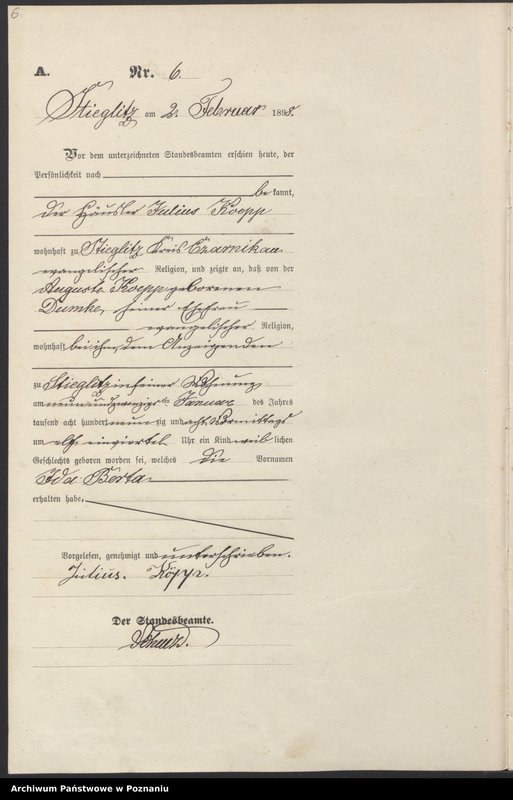 6
A.
Nr. 6.
Stieglitz am 2. Februar 1898.
Vor dem unterzeichneten Standesbeamten erschien heute, der
Persönlichkeit nach
be kannt,
der Häusler Julius Koepp
wohnhaft zu Stieglitz Kreis Czarnikau
evangelischer Religion, und zeigte an, daß von der
Auguste Koepp geborenen
Dumke, seiner Ehefrau
evangelischer Religion,
wohnhaft bei ihm, dem Anzeigenden
zu Stieglitz in seiner Wohnung
am neun und zwanzigsten Januar des Jahres
tausend acht hundert neun zig und acht Vormittags
um elf einviertel Uhr ein Kind weib lichen
Geschlechts geboren worden sei, welches die Vornamen
Ida Berta
erhalten habe.
Vorgelesen, genehmigt und unterschrieben.
Julius. Köpp.
Der Standesbeamte.
Archiwum Państwowe w Poznaniu